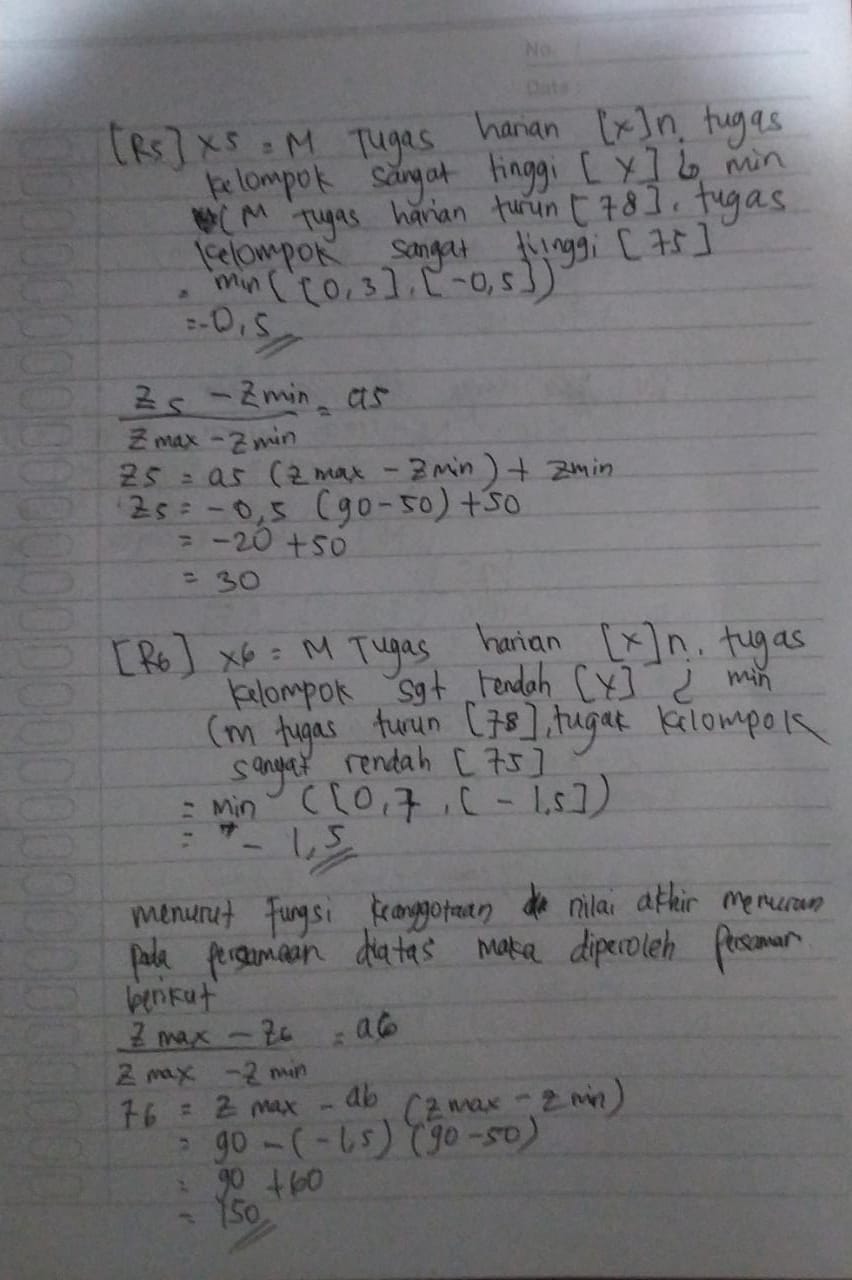 No.
Date:
[R5] x5 = M Tugas harian [x] n. tugas
kelompok sangat tinggi [Y] min
(M Tugas harian turun [78]. tugas
kelompok sangat tiinggi [75]
= min ([0,3].[-0,5])
=-0,5
Z5 - Zmin = a5
Zmax - Zmin
Z5 = a5 (Zmax - Zmin) + Zmin
Z5 = -0,5 (90-50) +50
= -20 +50
= 30
[R6] x6 = M Tugas harian [x] n. tugas
kelompok sgt rendah [Y] min
(m tugas turun [78], tugak kelompok
sangat rendah [75]
= min ([0,7 .[-1,5])
= - 1,5
menurut Fungsi keanggotaan nilai akhir menurun
pada persamaan diatas maka diperoleh Persamaan
berikut
Z max - Z6 = a6
Z max - Z min
Z6 = Z max - a6 (Z max - Z min)
= 90 - (-1,5) (90-50)
= 90 + 60
= 150